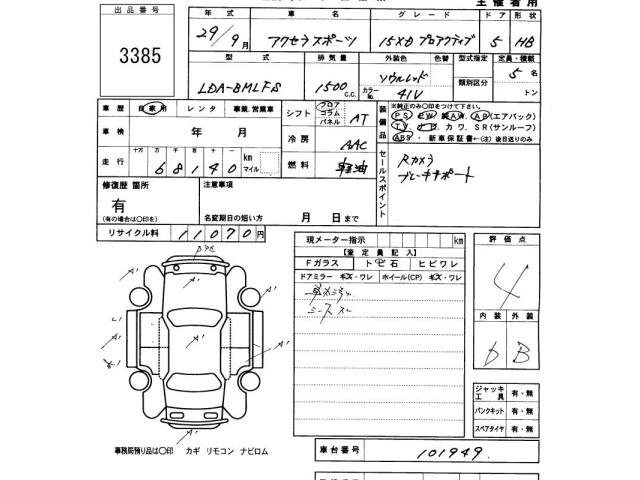 主催者用
出品番号
3385
年式 車名 グレード ドア 形状
29/9月 アクセラスポーツ 15XD プロアクティブ 5 HB
型式 排気量 外装色 色替 型式指定 定員・積載
LDA-BMLFS 1500 C.C. ソウルレッド 類別区分 5名
カラーNo. 41V トン
車歴 自家用 レンタ 事業、営業車
シフト フロア コラム パネル AT
車検 年 月
冷房 AAC
走行 十万 万 千 百 十
68140 km マイル
燃料 軽油
装備品 ※純正のみ○印をつけて下さい。
PS PW 純AW AB(エアバック)
TV ナビ カワ SR(サンルーフ)
ABS・新車保証書←(注)後日送りのみ
セールスポイント
Rカメラ
ブレーキサポート
修復歴 箇所
有
(有の場合は○印を)
注意事項
名変期日の短い方 月 日まで
リサイクル料 11070円
現メーター指示 km
【査定員記入】
Fガラス トビ石 ヒビワレ
ドアミラー キズ・ワレ ホイール(CP) キズ・ワレ
評価点
4
内装 外装
B
A1
A1
A1
A1
A1
A1
ジャッキ 工具 有・無
パンクキット 有・無
スペアタイヤ 有・無
事務局預り品は○印 カギ リモコン ナビロム
車台番号 101949